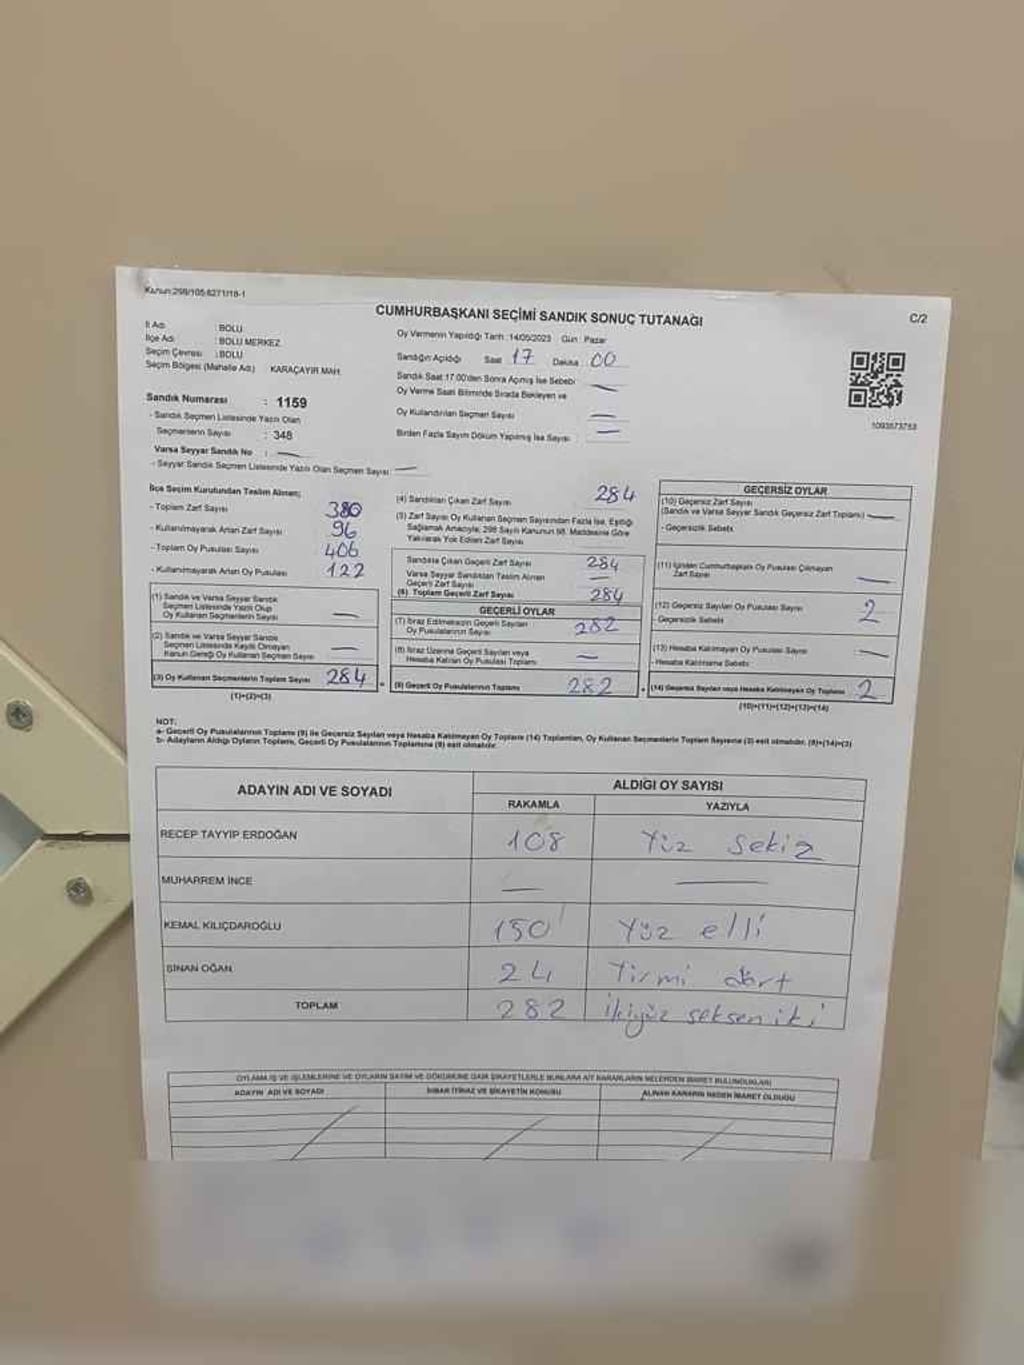 Kanun:298/105;6271/18-1
C/2
CUMHURBAŞKANI SEÇİMİ SANDIK SONUÇ TUTANAĞI
İl Adı : BOLU
İlçe Adı : BOLU MERKEZ
Seçim Çevresi : BOLU
Seçim Bölgesi (Mahalle Adı) KARAÇAYIR MAH.
Oy Vermenin Yapıldığı Tarih :14/05/2023 Gün : Pazar
Sandığın Açıldığı Saat 17 Dakika 00
Sandık Saat 17:00'den Sonra Açılmış İse Sebebi
Oy Verme Saati Bitiminde Sırada Bekleyen ve
Oy Kullandırılan Seçmen Sayısı
Birden Fazla Sayım Döküm Yapılmış İse Sayısı :
1093573753
Sandık Numarası : 1159
- Sandık Seçmen Listesinde Yazılı Olan
Seçmenlerin Sayısı : 348
Varsa Seyyar Sandık No :
- Seyyar Sandık Seçmen Listesinde Yazılı Olan Seçmen Sayısı :
İlçe Seçim Kurulundan Teslim Alınan;
- Toplam Zarf Sayısı 380
- Kullanılmayarak Artan Zarf Sayısı 96
- Toplam Oy Pusulası Sayısı 406
- Kullanılmayarak Artan Oy Pusulası 122
(1) Sandık ve Varsa Seyyar Sandık
Seçmen Listesinde Yazılı Olup
Oy Kullanan Seçmenlerin Sayısı
(2) Sandık ve Varsa Seyyar Sandık
Seçmen Listesinde Kaydı Olmayan
Kanun Gereği Oy Kullanan Seçmen Sayısı
(3) Oy Kullanan Seçmenlerin Toplam Sayısı 284
(1)+(2)=(3)
(4) Sandıktan Çıkan Zarf Sayısı 284
(5) Zarf Sayısı Oy Kullanan Seçmen Sayısından Fazla İse, Eşitliği
Sağlamak Amacıyla; 298 Sayılı Kanunun 98. Maddesine Göre
Yakılarak Yok Edilen Zarf Sayısı
Sandıkta Çıkan Geçerli Zarf Sayısı 284
Varsa Seyyar Sandıktan Teslim Alınan
Geçerli Zarf Sayısı
(6) Toplam Geçerli Zarf Sayısı 284
GEÇERLİ OYLAR
(7) İtiraz Edilmeksizin Geçerli Sayılan
Oy Pusulalarının Sayısı 282
(8) İtiraz Üzerine Geçerli Sayılan veya
Hesaba Katılan Oy Pusulası Toplamı
(9) Geçerli Oy Pusulalarının Toplamı 282
GEÇERSİZ OYLAR
(10) Geçersiz Zarf Sayısı
(Sandık ve Varsa Seyyar Sandık Geçersiz Zarf Toplamı)
- Geçersizlik Sebebi:
(11) İçinden Cumhurbaşkanı Oy Pusulası Çıkmayan
Zarf Sayısı
(12) Geçersiz Sayılan Oy Pusulası Sayısı 2
- Geçersizlik Sebebi:
(13) Hesaba Katılmayan Oy Pusulası Sayısı
- Hesaba Katılmama Sebebi:
(14) Geçersiz Sayılan veya Hesaba Katılmayan Oy Toplamı 2
(10)+(11)+(12)+(13)=(14)
NOT:
a- Geçerli Oy Pusulalarının Toplamı (9) ile Geçersiz Sayılan veya Hesaba Katılmayan Oy Toplamı (14) Toplamları, Oy Kullanan Seçmenlerin Toplam Sayısına (3) eşit olmalıdır. (9)+(14)=(3)
b- Adayların Aldığı Oyların Toplamı, Geçerli Oy Pusulalarının Toplamına (9) eşit olmalıdır.
ADAYIN ADI VE SOYADI ALDIĞI OY SAYISI
RAKAMLA YAZIYLA
RECEP TAYYİP ERDOĞAN 108 Yüz Sekiz
MUHARREM İNCE
KEMAL KILIÇDAROĞLU 150 Yüz elli
SİNAN OĞAN 24 Yirmi dört
TOPLAM 282 İkiyüz seksen iki
OYLAMA İŞ VE İŞLEMLERİNE VE OYLARIN SAYIM VE DÖKÜMÜNE DAİR ŞİKAYETLERLE BUNLARA AİT KARARLARIN NELERDEN İBARET BULUNDUKLARI
ADAYIN ADI VE SOYADI İHBAR İTİRAZ VE ŞİKAYETİN KONUSU ALINAN KARARIN NEDEN İBARET OLDUĞU